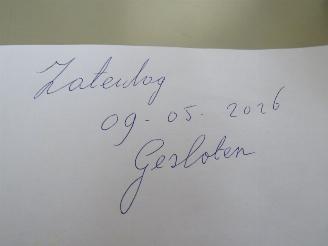 Zaterdag
09-05. 2026
Gesloten